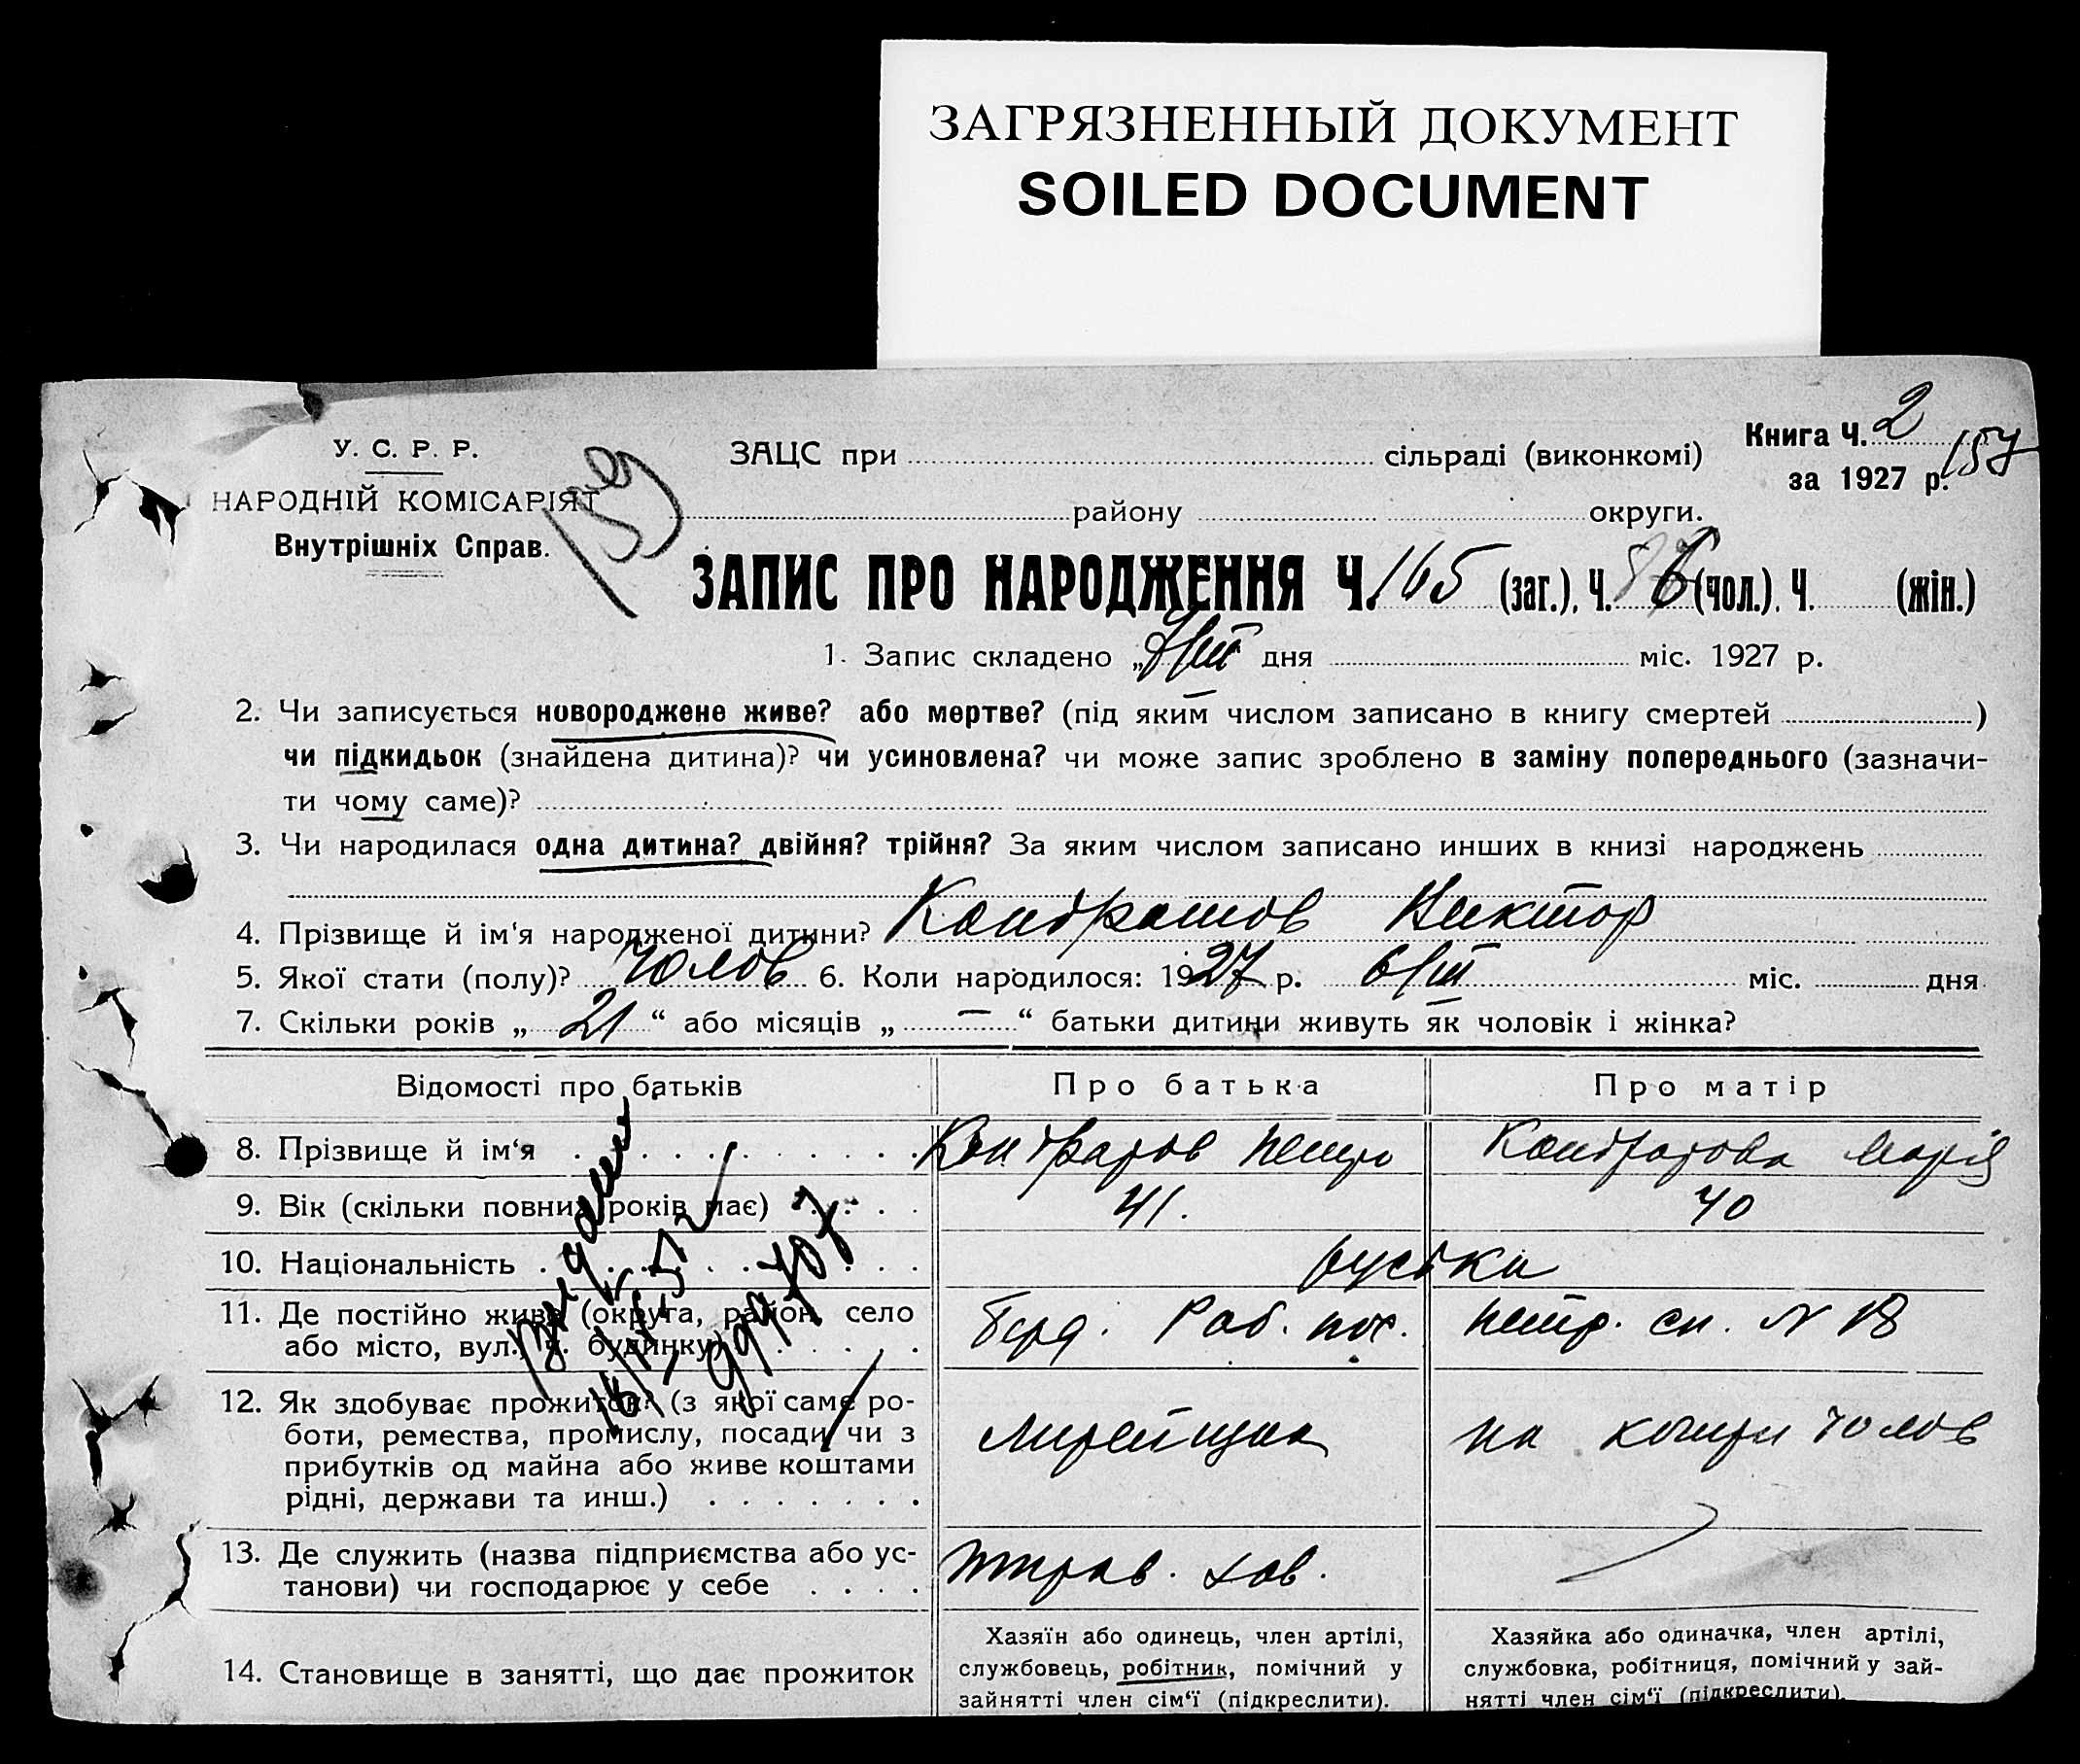 ЗАГРЯЗНЕННЫЙ ДОКУМЕНТ
SOILED DOCUMENT
У. С. Р. Р.
НАРОДНІЙ КОМІСАРІЯТ
Внутрішніх Справ.
159
ЗАЦС при сільраді (виконкомі)
району округи.
Книга Ч. 2
за 1927 р. 157
ЗАПИС ПРО НАРОДЖЕННЯ Ч. 165 (заг.), Ч. 86 (чол.), Ч. (жін.)
1. Запис складено „ 7/III дня міс. 1927 р.
2. Чи записується новороджене живе? або мертве? (під яким числом записано в книгу смертей )
чи підкидьок (знайдена дитина)? чи усиновлена? чи може запис зроблено в заміну попереднього (зазначи-
ти чому саме)?
3. Чи народилася одна дитина? двійня? трійня? За яким числом записано инших в книзі народжень
4. Прізвище й ім'я народженої дитини? Кондрашов Виктор
5. Якої стати (полу)? Чолов 6. Коли народилося: 1927 р. 6/III міс. дня
7. Скільки років „ 21 “ або місяців „ — “ батьки дитини живуть як чоловік і жінка?
Відомості про батьків Про батька Про матір
8. Прізвище й ім'я Петро Марія
9. Вік (скільки повних років має) 41. 40
10. Національність руські
11. Де постійно живе (округа, район, село Берд. Раб. пос. Петр. сп. N 18
або місто, вул., ч. будинку)
12. Як здобуває прожиток? (з якої саме ро-
боти, ремества, промислу, посади, чи з
прибутків од майна або живе коштами
рідні, держави та инш.)
на кошти чолов
13. Де служить (назва підприємства або ус-
танови) чи господарює у себе
14. Становище в занятті, що дає прожиток
Хазяїн або одинець, член артілі,
службовець, робітник, помічний у
зайнятті член сім'ї (підкреслити).
Хазяйка або одиначка, член артілі,
службовка, робітниця, помічний у зай-
нятті член сім'ї (підкреслити).